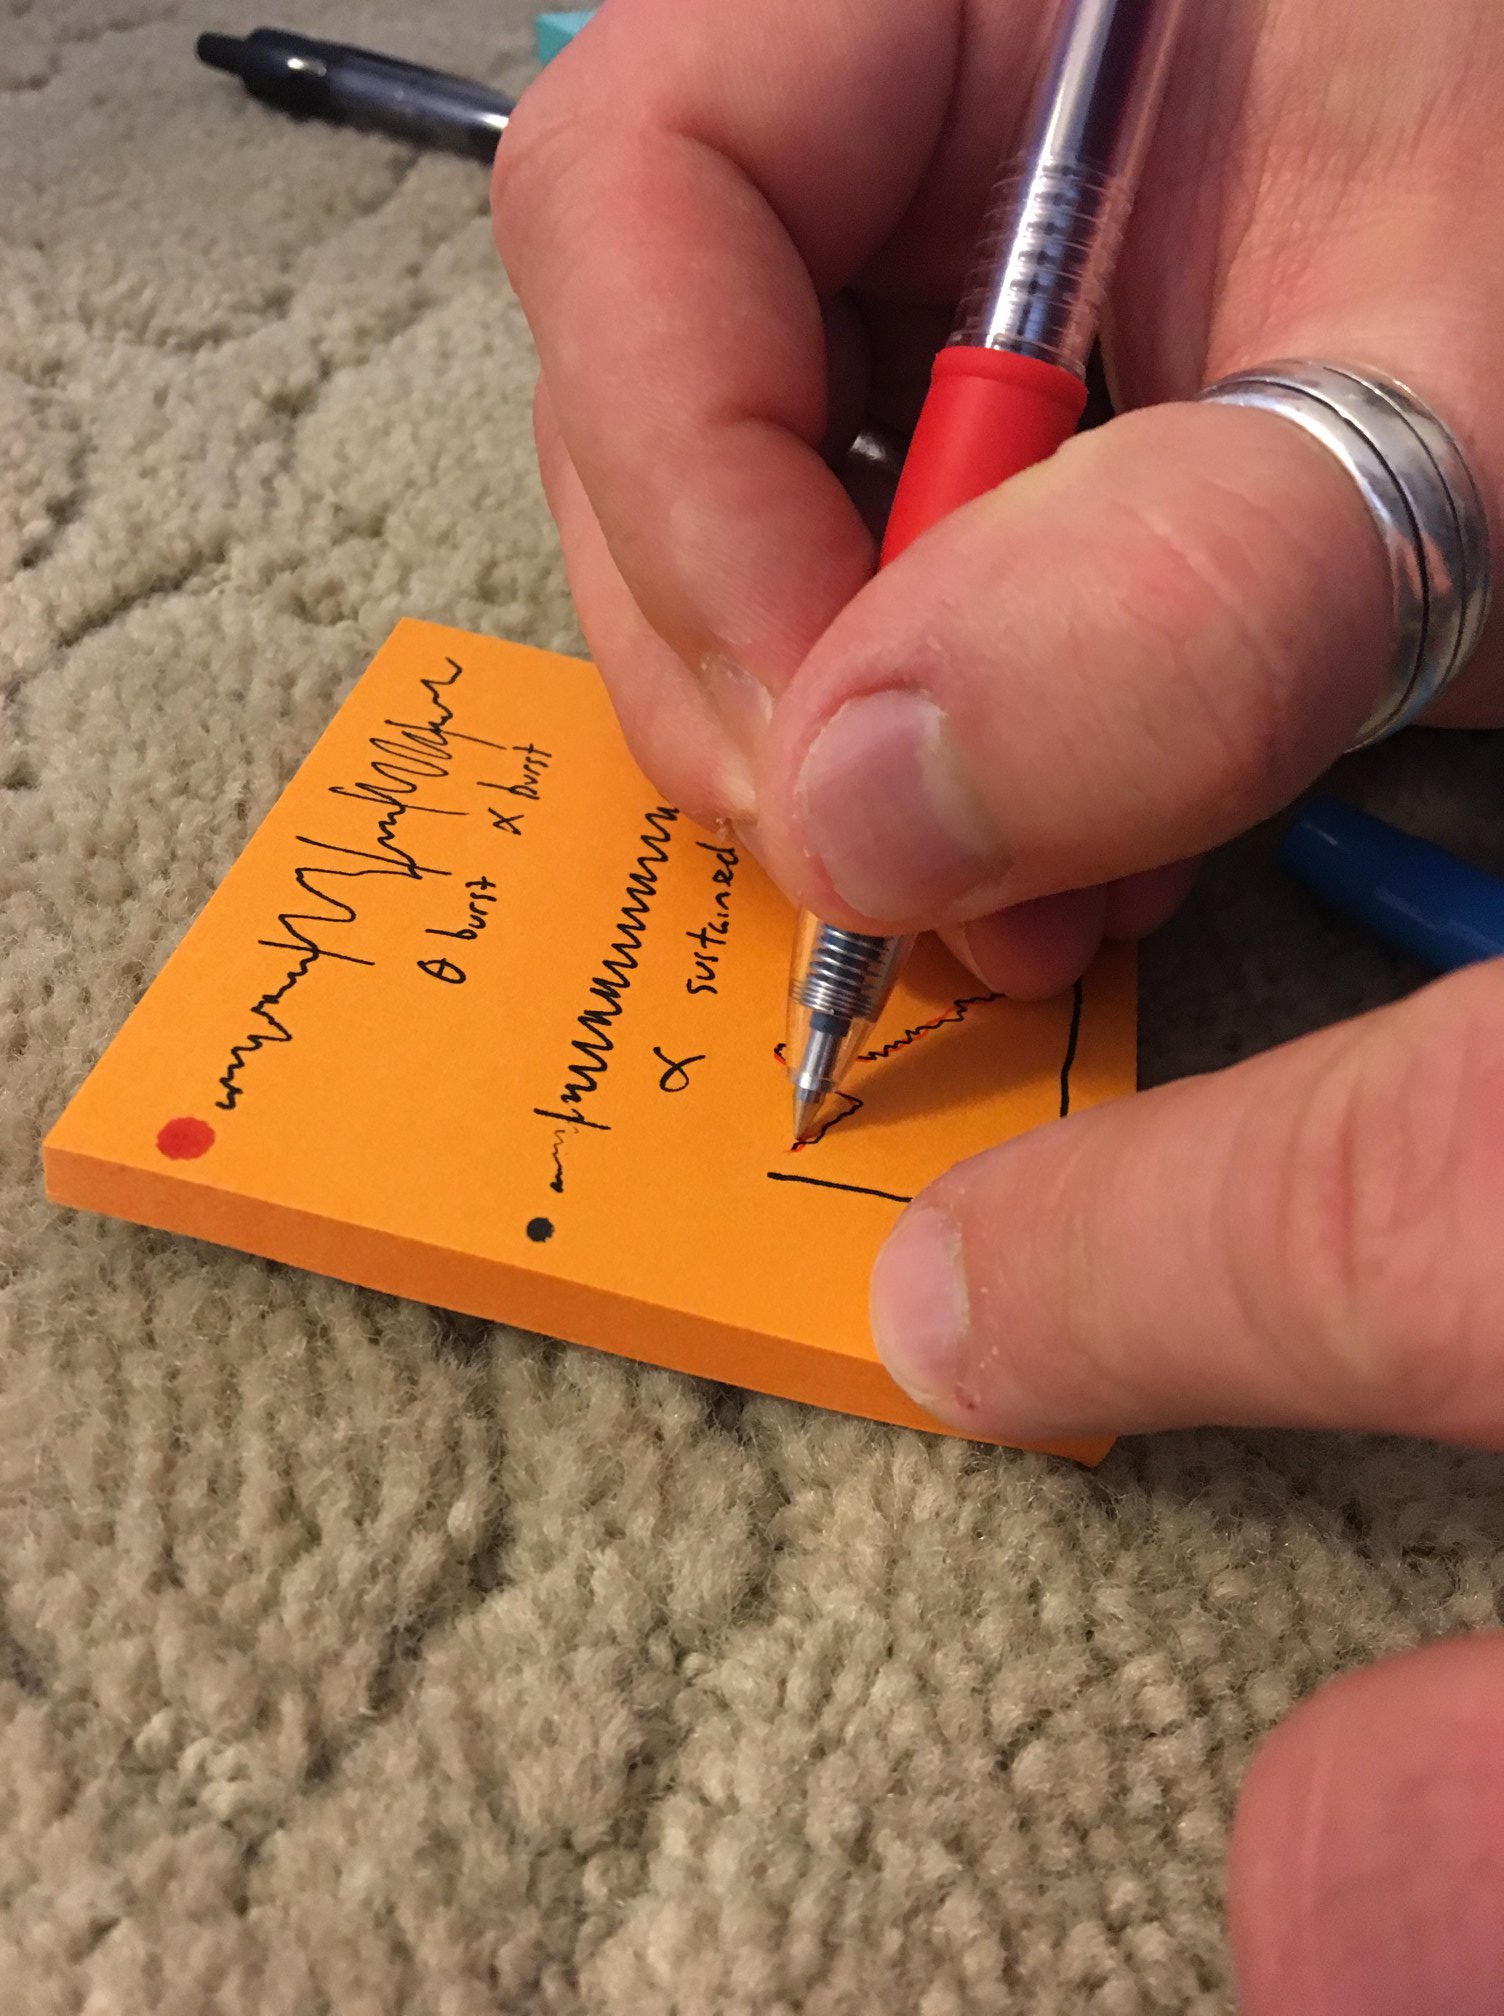 θ burst α burst
α sustained